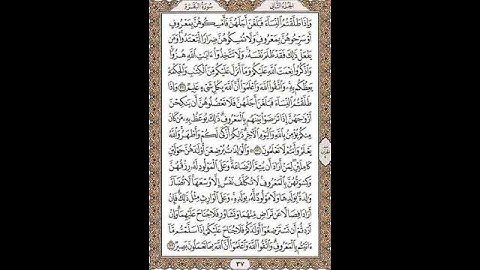 الجزء الثاني
سورة البقرة
وإذا طلقتم النساء فبلغن أجلهن فأمسكوهن بمعروف
أو سرحوهن بمعروف ولا تمسكوهن ضرارا لتعتدوا ومن
يفعل ذلك فقد ظلم نفسه ولا تتخذوا ءايت الله هزوا
واذكروا نعمت الله عليكم وما أنزل عليكم من الكتب والحكمة
يعظكم به واتقوا الله واعلموا أن الله بكل شيء عليم ٢٣١ وإذا
طلقتم النساء فبلغن أجلهن فلا تعضلوهن أن ينكحن
أزوجهن إذا ترضوا بينهم بالمعروف ذلك يوعظ به من كان
منكم يؤمن بالله واليوم الآخر ذلكم أزكى لكم وأطهر والله
يعلم وأنتم لا تعلمون ٢٣٢ والولدت يرضعن أولدهن حولين
كاملين لمن أراد أن يتم الرضاعة وعلى المولود له رزقهن
وكسوتهن بالمعروف لا تكلف نفس إلا وسعها لا تضار
ولدة بولدها ولا مولود له بولده وعلى الوارث مثل ذلك فإن
أرادا فصالا عن تراض منهما وتشاور فلا جناح عليهما وإن
أردتم أن تسترضعوا أولدكم فلا جناح عليكم إذا سلمتم ما
ءاتيتم بالمعروف واتقوا الله واعلموا أن الله بما تعملون بصير ٢٣٣
٣٧